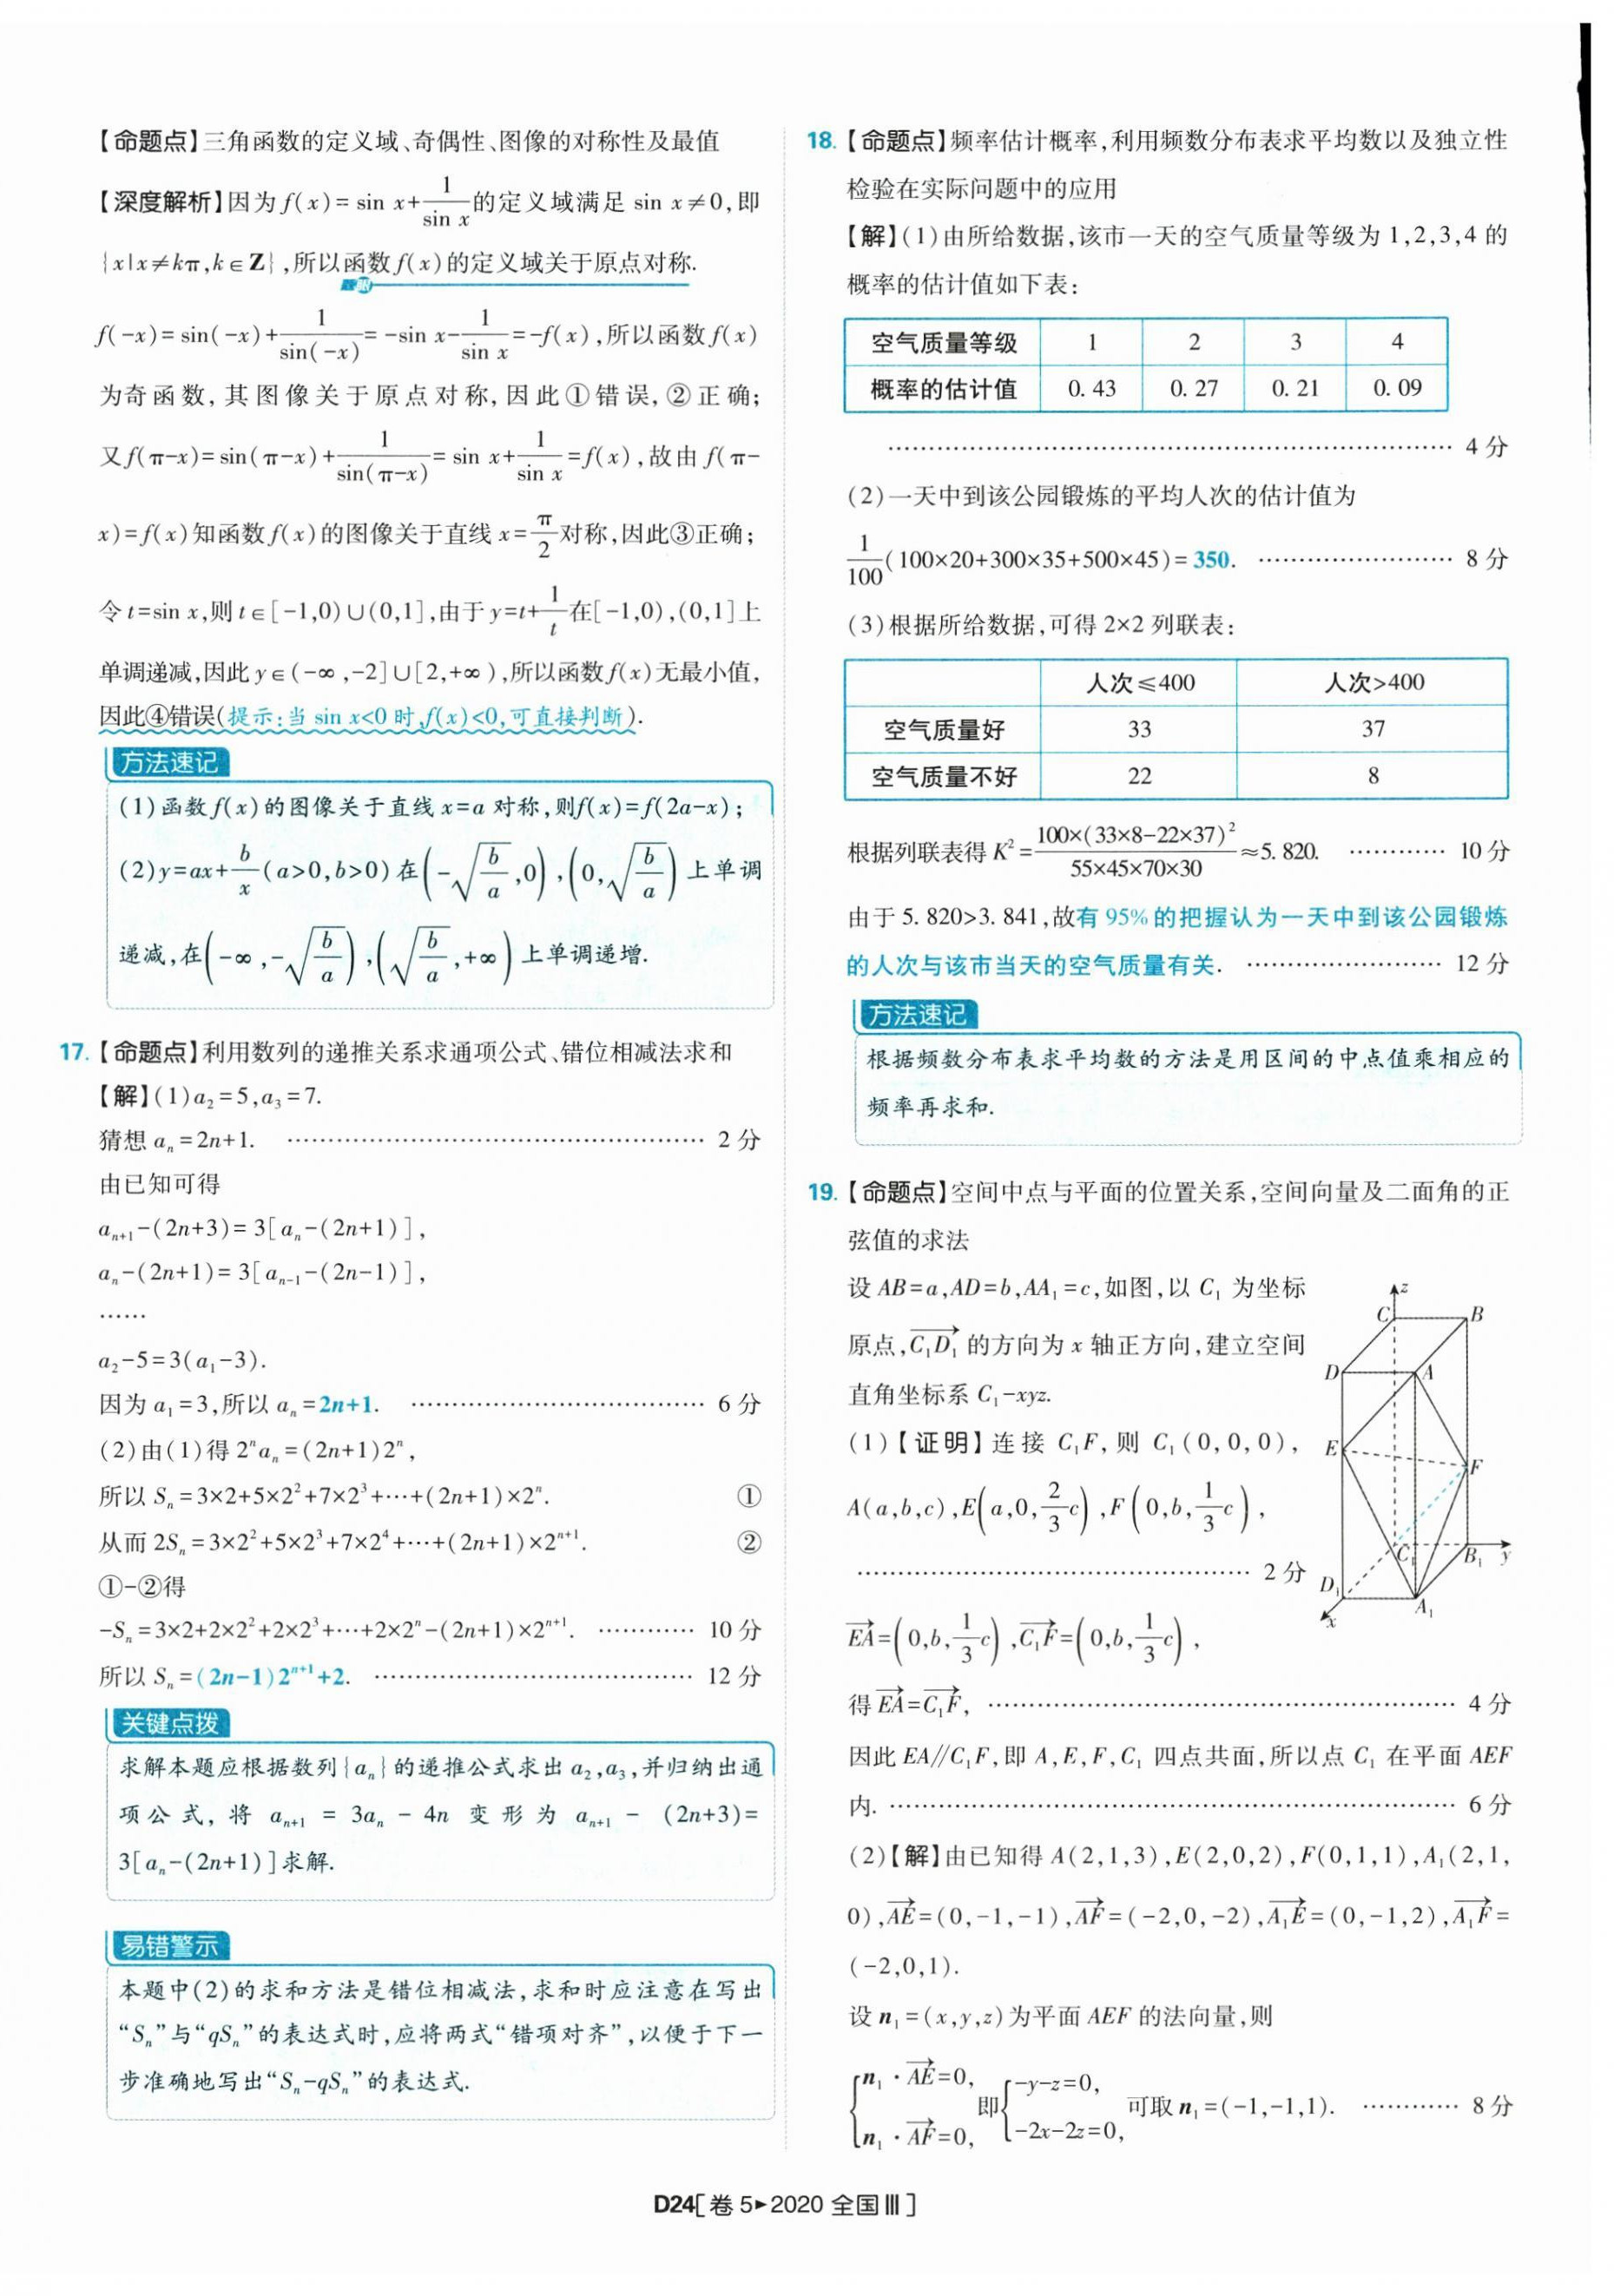 【命题点】三角函数的定义域、奇偶性、图像的对称性及最值
【深度解析】因为f(x)= sin x+1/sin x的定义域满足 sin x≠0,即
{x|x≠kπ,k∈Z},所以函数f(x)的定义域关于原点对称.
f(-x)= sin(-x)+1/sin(-x)= -sin x-1/sin x=-f(x),所以函数f(x)
为奇函数,其图像关于原点对称,因此①错误,②正确;
又f(π-x)= sin(π-x)+1/sin(π-x)= sin x+1/sin x=f(x),故由 f(π-
x)=f(x)知函数f(x)的图像关于直线 x=π/2对称,因此③正确;
令t=sin x,则t∈[-1,0)∪(0,1],由于y=t+1/t在[-1,0),(0,1]上
单调递减,因此y∈(-∞,-2]∪[2,+∞),所以函数f(x)无最小值,
因此④错误(提示:当 sin x<0 时,f(x)<0,可直接判断).
方法速记
(1)函数f(x)的图像关于直线x=a 对称,则f(x)=f(2a-x);
(2)y=ax+b/x(a>0,b>0)在(-√(b/a),0),(0,√(b/a))上单调
递减,在(-∞,-√(b/a)),(√(b/a),+∞)上单调递增.
17.【命题点】利用数列的递推关系求通项公式、错位相减法求和
【解】(1)a₂=5,a₃=7.
猜想 aₙ=2n+1. ……………… 2 分
由已知可得
aₙ₊₁-(2n+3)= 3[aₙ-(2n+1)],
aₙ-(2n+1)= 3[aₙ₋₁-(2n-1)],
……
a₂-5=3(a₁-3).
因为 a₁=3,所以 aₙ=2n+1. ……………… 6 分
(2)由(1)得 2ⁿaₙ=(2n+1)2ⁿ,
所以 Sₙ=3×2+5×2²+7×2³+…+(2n+1)×2ⁿ. ①
从而 2Sₙ=3×2²+5×2³+7×2⁴+…+(2n+1)×2ⁿ⁺¹. ②
①-②得
-Sₙ=3×2+2×2²+2×2³+…+2×2ⁿ-(2n+1)×2ⁿ⁺¹. ………… 10 分
所以 Sₙ=(2n-1)2ⁿ⁺¹+2. ……………… 12 分
关键点拨
求解本题应根据数列{aₙ}的递推公式求出 a₂,a₃,并归纳出通
项公式,将 aₙ₊₁ = 3aₙ - 4n 变形为 aₙ₊₁ - (2n+3)=
3[aₙ-(2n+1)]求解.
易错警示
本题中(2)的求和方法是错位相减法,求和时应注意在写出
“Sₙ”与“qSₙ”的表达式时,应将两式“错项对齐”,以便于下一
步准确地写出“Sₙ-qSₙ”的表达式.
18.【命题点】频率估计概率,利用频数分布表求平均数以及独立性
检验在实际问题中的应用
【解】(1)由所给数据,该市一天的空气质量等级为 1,2,3,4 的
概率的估计值如下表:
空气质量等级 1 2 3 4
概率的估计值 0.43 0.27 0.21 0.09
……………… 4 分
(2)一天中到该公园锻炼的平均人次的估计值为
1/100(100×20+300×35+500×45)= 350. ……………… 8 分
(3)根据所给数据,可得 2×2 列联表:
人次≤400 人次>400
空气质量好 33 37
空气质量不好 22 8
根据列联表得 K²=100×(33×8-22×37)²/55×45×70×30≈5.820. ………… 10 分
由于 5.820>3.841,故有 95%的把握认为一天中到该公园锻炼
的人次与该市当天的空气质量有关. ……………… 12 分
方法速记
根据频数分布表求平均数的方法是用区间的中点值乘相应的
频率再求和.
19.【命题点】空间中点与平面的位置关系,空间向量及二面角的正
弦值的求法
设 AB=a,AD=b,AA₁=c,如图,以 C₁ 为坐标
原点,C₁D₁→ 的方向为 x 轴正方向,建立空间
直角坐标系 C₁-xyz.
(1)【证明】连接 C₁F,则 C₁(0,0,0),
A(a,b,c),E(a,0,2/3c),F(0,b,1/3c),
……………… 2 分
EA→=(0,b,1/3c),C₁F→=(0,b,1/3c),
z
C
B
D
A
E
F
C₁
B₁
y
D₁
A₁
x
得EA→=C₁F→, ……………… 4 分
因此 EA∥C₁F,即 A,E,F,C₁ 四点共面,所以点 C₁ 在平面 AEF
内. ……………… 6 分
(2)【解】由已知得 A(2,1,3),E(2,0,2),F(0,1,1),A₁(2,1,
0),AE→=(0,-1,-1),AF→=(-2,0,-2),A₁E→=(0,-1,2),A₁F→=
(-2,0,1).
设 n₁=(x,y,z)为平面 AEF 的法向量,则
{n₁·AE→=0, n₁·AF→=0, 即{-y-z=0, -2x-2z=0, 可取 n₁=(-1,-1,1). ………… 8 分
D24[卷 5►2020 全国Ⅲ]